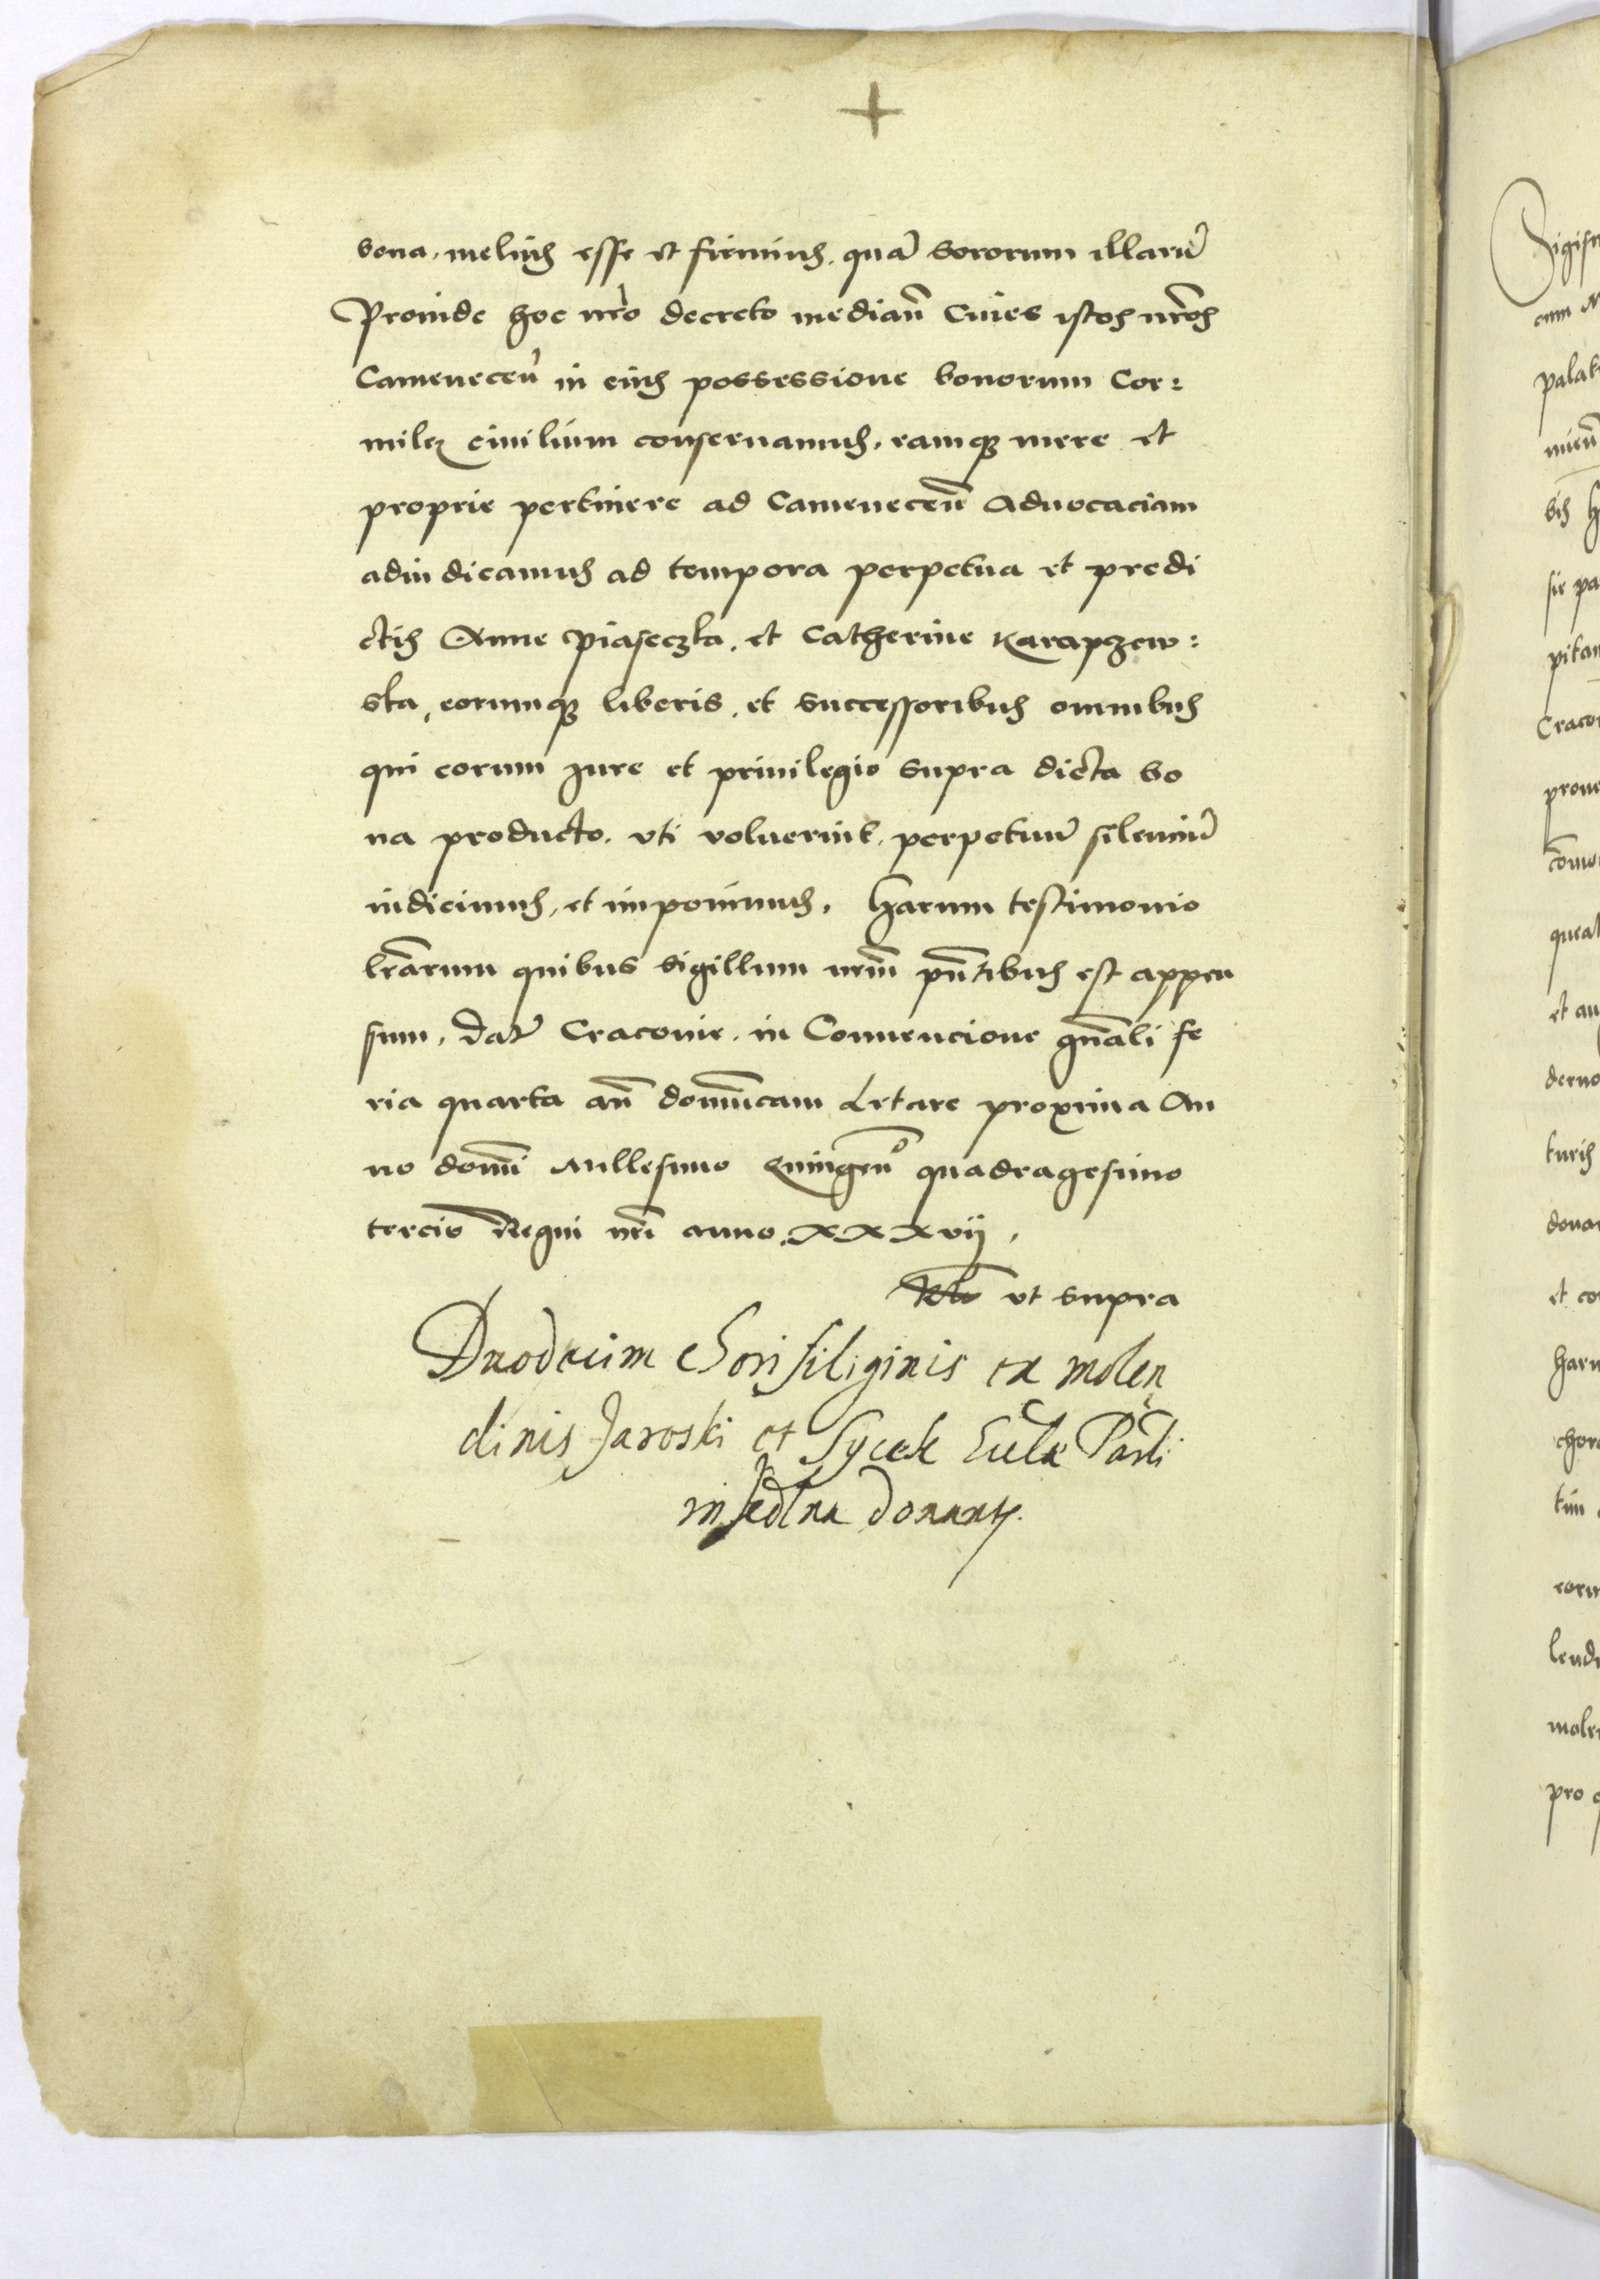 bona, melius esse et firmius, quā sororum illarū
Proinde hoc nrō decreto mediañ Ciues istos nrōs
Camenecen̄ in eius possessione bonorum Cor:
milcz ciuilium conseruamus, eamq3 mere et
proprie pertinere ad Camenecen̄ Aduocaciam
adiudicamus ad tempora perpetua et predi
ctis Anne Piaseczka, et Catherine Karapczew:
ska, eorumq3 liberis, et successoribus omnibus
qui eorum jure et priuilegio supra dicta bo
na producto, vti voluerint, perpetuū silenciū
indicimus, et imponimus, Harum testimonio
lrārum quibus sigillum nrm̄ pn̄tibus est appen
sum, Dat̄ Cracouie, in Conuencione gn̄ali fe
ria quarta an̄ domīcam Letare proxima An
no domī Millesimo Quingen̄o quadragesimo
tercio Regni nrī anno XXXvij,
vt supra
Duodecim Chori siliginis ex molen
dinis Jaroski et Sycek Eccle Parli
in donant.
Sigis
cum
palat
bis
sie pa
pitan
Craco
quat
et au
derno
turis
donar
et co
haru
chor
coru
lendi
mole
pro